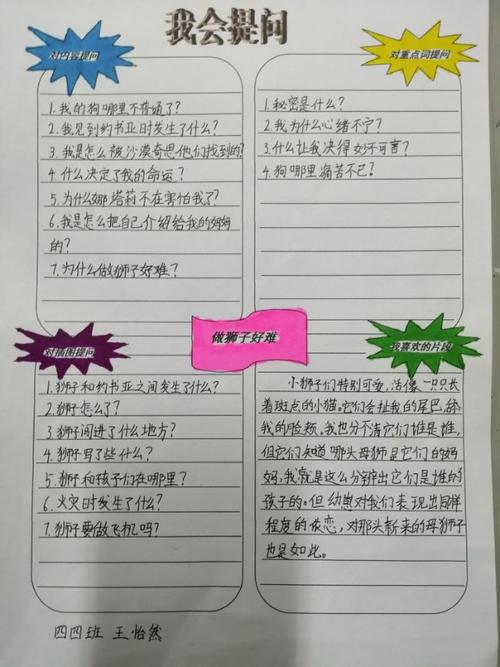 我会提问
对内容提问
1.我的狗哪里不普通了?
2.我见到约书亚时发生了什么?
3.我是怎么被沙漠奇思他们找到的?
4.什么决定了我的命运?
5.为什么娜塔莉不在害怕我了?
6.我是怎么把自己介绍给我的妈妈
的?
7.为什么做狮子好难?
对重点词提问
1.秘密是什么?
2.我为什么心绪不宁?
3.什么让我决得妙不可言?
4.狗哪里痛苦不已?
做狮子好难
对插图提问
1.狮子和约书亚之间发生了什么?
2.狮子怎么了?
3.狮子闯进了什么地方?
4.狮子写了些什么?
5.狮子和孩子们在哪里?
6.火灾时发生了什么?
7.狮子要做飞机吗?
我喜欢的片段
小狮子们特别可爱,活像一只只长
着斑点的小猫。它们会扯我的尾巴,舔
我的脸颊,我也分不清它们谁是谁,
但它们知道哪头母狮是它们的妈
妈,我就是这么分辨出它们是谁的
孩子的。但幼崽对我们表现出同样
程度的依恋,对那头新来的母狮子
也是如此。
四四班 王怡然